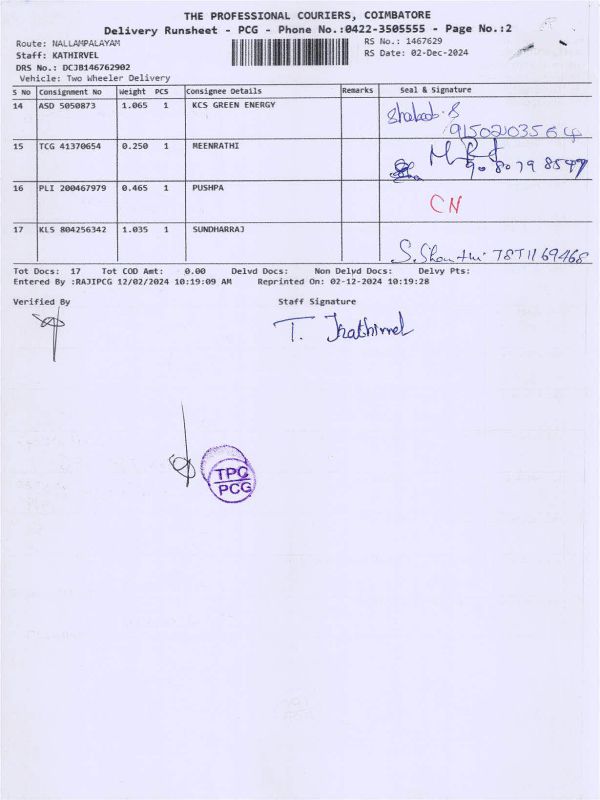 THE PROFESSIONAL COURIERS, COIMBATORE
Delivery Runsheet - PCG - Phone No.:0422-3505555 - Page No.:2
Route: NALLAMPALAYAM RS No.: 1467629
Staff: KATHIRVEL RS Date: 02-Dec-2024
DRS No.: DCJB146762902
Vehicle: Two Wheeler Delivery
S No Consignment No Weight PCS Consignee Details Remarks Seal & Signature
14 ASD 5050873 1.065 1 KCS GREEN ENERGY
9150203564
15 TCG 41370654 0.250 1 MEENRATHI
9080798547
16 PLI 200467979 0.465 1 PUSHPA
CN
17 KLS 804256342 1.035 1 SUNDHARRAJ
S. 7871169468
Tot Docs: 17 Tot COD Amt: 0.00 Delvd Docs: Non Delyd Docs: Delvy Pts:
Entered By :RAJIPCG 12/02/2024 10:19:09 AM Reprinted On: 02-12-2024 10:19:28
Verified By Staff Signature
T. Kathirvel
TPC
PCG